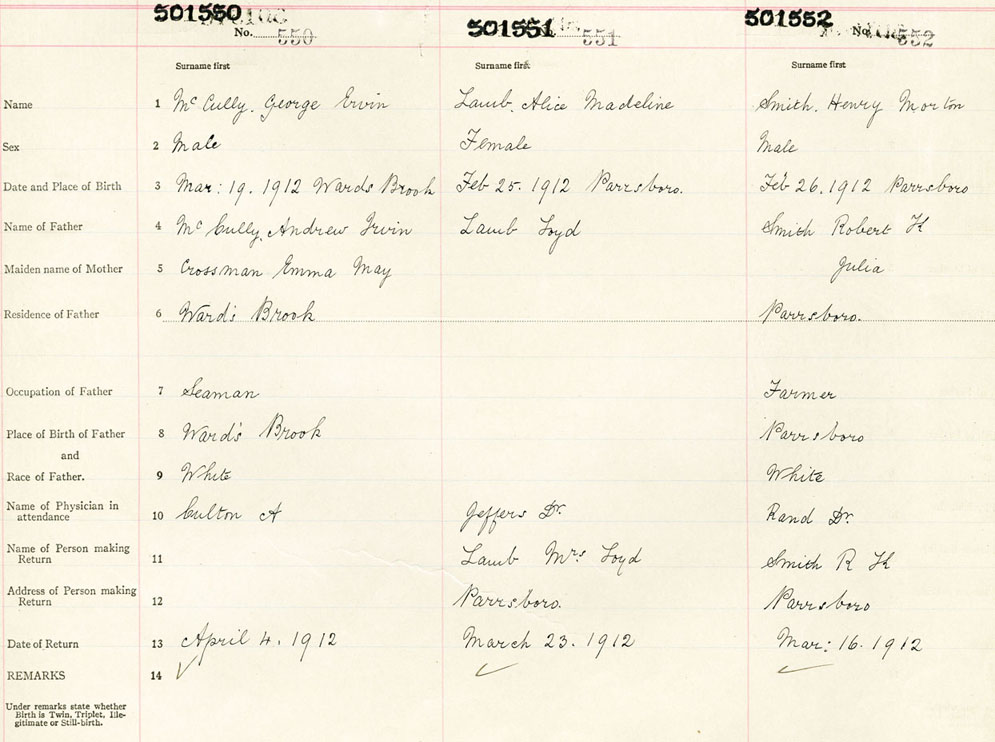 501550 501551 501552
No. 550 551 No. 552
Surname first Surname first Surname first
Name 1 McCully. George Ervin Lamb. Alice Madeline Smith. Henry Morton
Sex 2 Male Female Male
Date and Place of Birth 3 Mar: 19. 1912 Wards Brook Feb 25. 1912 Parrsboro. Feb 26. 1912 Parrsboro
Name of Father 4 McCully, Andrew Irvin Lamb Loyd Smith Robert K
Maiden name of Mother 5 Crossman Emma May Julia
Residence of Father 6 Ward's Brook Parrsboro.
Occupation of Father 7 Seaman Farmer
Place of Birth of Father 8 Ward's Brook Parrsboro
and
Race of Father. 9 White White
Name of Physician in
attendance 10 Culton A Jeffers Dr. Rand Dr.
Name of Person making
Return 11 Lamb Mrs Loyd Smith R K
Address of Person making
Return 12 Parrsboro. Parrsboro
Date of Return 13 April 4. 1912 March 23. 1912 Mar: 16. 1912
REMARKS 14
Under remarks state whether
Birth is Twin, Triplet, Ille-
gitimate or Still-birth.